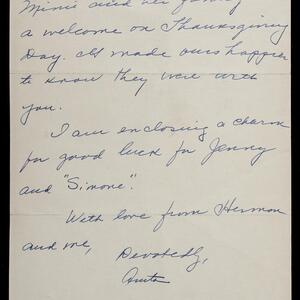 Minie and her family
a welcome on Thanksgiving
Day. It made ours happier
to know they were with
you.
I am enclosing a charm
for good luck for Jenny
and "Simone".
With love from Herman
and me,
Devotedly,
Anita